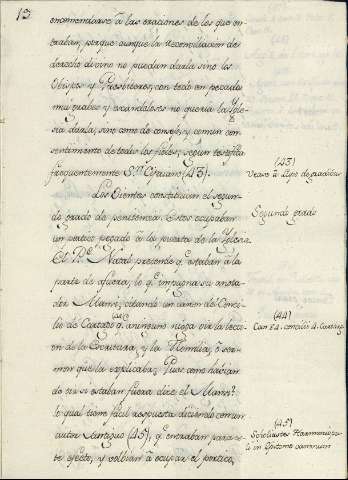 13
encomendarse à las oraciones de los que en-
traban, porque aunque la reconciliacion de
derecho divino no puedan darla sino los
Obispos y Presbiteros, con todo en pecados
mui graves y escandalosos no queria la Igle-
sia darla, sino como de consejo, y comun con-
sentimiento de todos los fieles, segun testifica
frequentemente Sn. Cipriano (43).
(43)
Vease à Lipo de
Los Oientes constituian el segun-
do grado de penitencia. Estos ocupaban
Segundo grado
un portico pegado à la puerta de la Iglesia.
El Pe. Natal pretende qe. estaban à la
parte de afuera, lo qe. impugna su anota-
dor Mansi, citando un canon del Conci-
lio de Cartago qe. à ninguno niega oir la lecci-
(44)
Can 84. concilii 4. Cartag.
on de la Escritura, y la Homilia, ò ser-
mon que la explicaba; Pues como habian
de oir si estaban fuera dice el Mansi?
lo qual tiene facil respuesta diciendo con un
autor Antiguo (45), qe. entraban para es-
te efecto, y volvian à ocupar el portico,
(45)
in Epitome canonum